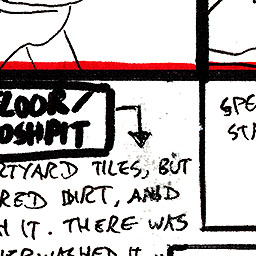 FLOOR/
OSHPIT
RTYARD TILES, BUT
RED DIRT, AND
H IT. THERE WAS
WASHED IT
SPE
STA